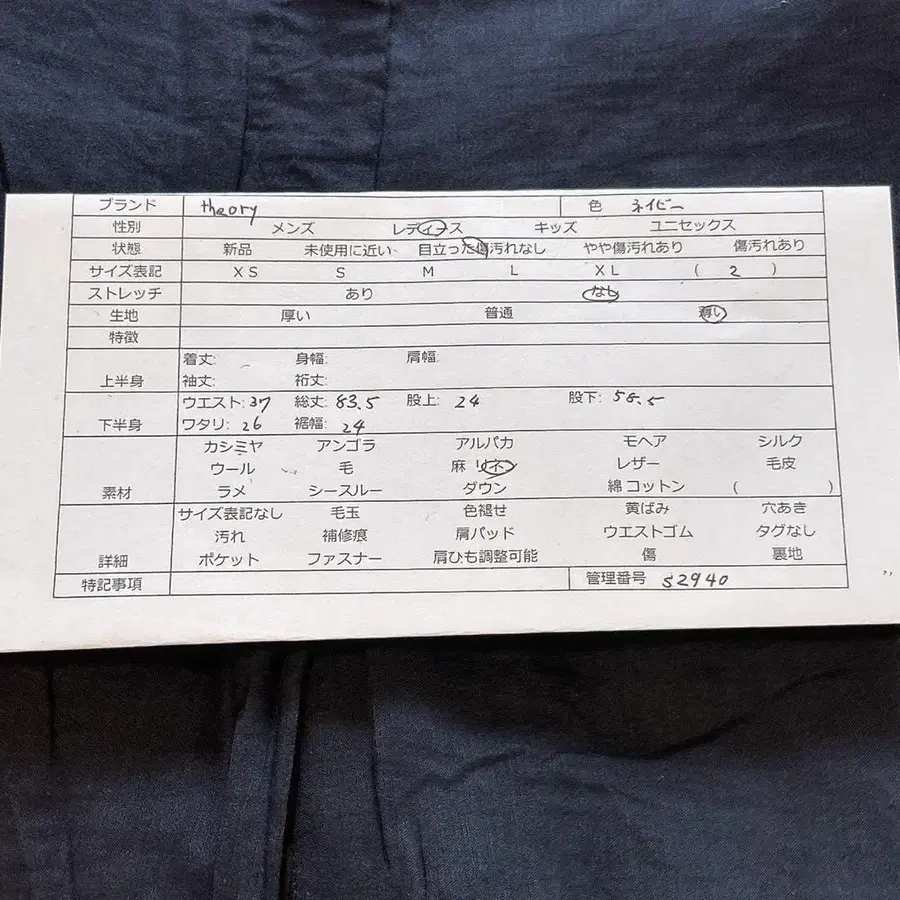 ブランド theory 色 ネイビー
性別 メンズ レディース キッズ ユニセックス
状態 新品 未使用に近い 目立った傷汚れなし やや傷汚れあり 傷汚れあり
サイズ表記 XS S M L XL ( 2 )
ストレッチ あり なし
生地 厚い 普通 薄い
特徴
上半身 着丈: 身幅: 肩幅:
袖丈: 裄丈:
下半身 ウエスト: 37 総丈: 83.5 股上: 24 股下: 58.5
ワタリ: 26 裾幅: 24
素材 カシミヤ アンゴラ アルパカ モヘア シルク
ウール 毛 麻 リネン レザー 毛皮
ラメ シースルー ダウン 綿 コットン ( )
詳細 サイズ表記なし 毛玉 色褪せ 黄ばみ 穴あき
汚れ 補修痕 肩パッド ウエストゴム タグなし
ポケット ファスナー 肩ひも調整可能 傷 裏地
特記事項 管理番号 S2940